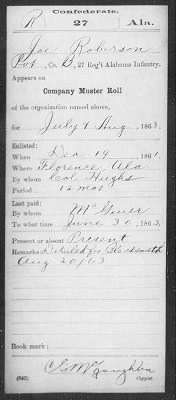 Confederate.
R 27 Ala.
Joe Roberson
Pvt, Co. B, 27 Reg't Alabama Infantry.
Appears on
Company Muster Roll
of the organization named above,
for July & Aug, 1863.
Enlisted:
When Dec 19, 1861.
Where Florence, Ala
By whom Col Hughs
Period 12 mos
Last paid:
By whom McGuier
To what time June 30, 1863.
Present or absent Present
Remarks: Detailed for Blacksmith
Aug 20/63
Book mark:
(642) Copyist.